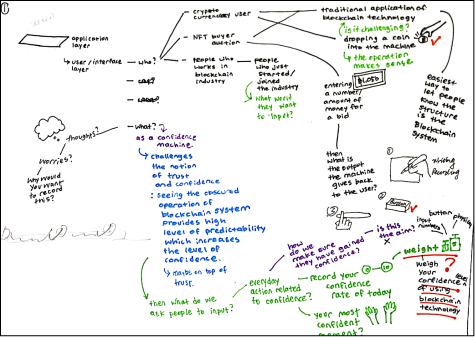 application
layer
user/interface
layer
who?
crypto
currency user
NFT buyer
auction
people who
works in
blockchain
industry
people
who just
started/
joined
the industry
what word
they want
to input?
traditional application of
blockchain technology
is it challenging?
dropping a coin
into the machine
the operation
makes sense
entering
a number/
amount of
money for
a bid
easiest
way to
let people
know the
structure
is the
Blockchain
system
then
what is
the output
the machine
gives back
to the user?
thoughts?
worries?
why would
you want
to record
this?
what?
as a confidence
machine
challenges
the notion
of trust
and confidence
: seeing the obscured
operation of
blockchain system
provides high
level of predictability
which increases
the level of
confidence.
on top of
trust
then what do we
ask people to input?
everyday
action related
to confidence?
how
do we
make sure
they have gained
confidence?
is this
the aim?
record your
confidence
rate of today
your most
confident
moment?
1
writing
recording
2
3
button
input
weight
weigh
your
confidence
level
of using
blockchain
technology
?